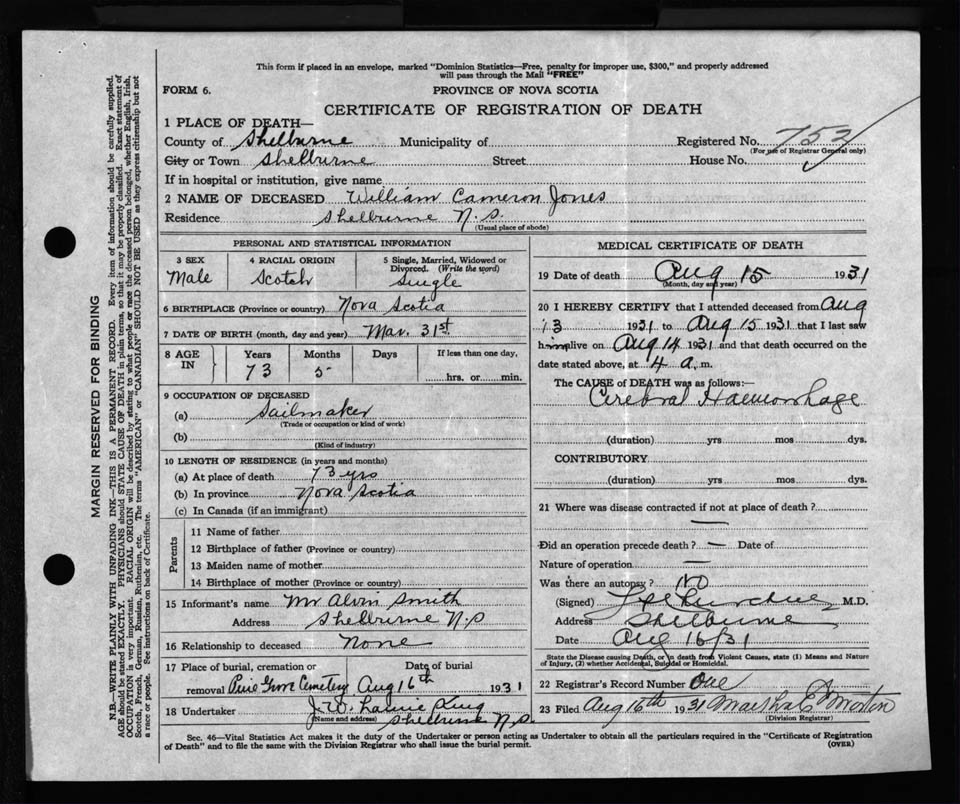 This form if placed in an envelope, marked "Dominion Statistics—Free, penalty for improper use, $300," and properly addressed
will pass through the Mail "FREE"
FORM 6.
PROVINCE OF NOVA SCOTIA
CERTIFICATE OF REGISTRATION OF DEATH
1 PLACE OF DEATH—
County of Shelburne Municipality of Registered No. 753
(For use of Registrar General only)
City or Town Shelburne Street House No.
If in hospital or institution, give name
2 NAME OF DECEASED William Cameron Jones
Residence Shelburne N.S.
(Usual place of abode)
PERSONAL AND STATISTICAL INFORMATION
3 SEX 4 RACIAL ORIGIN 5 Single, Married, Widowed or
Divorced. (Write the word)
Male Scotch Single
6 BIRTHPLACE (Province or country) Nova Scotia
7 DATE OF BIRTH (month, day and year) Mar. 31st
8 AGE IN Years Months Days If less than one day,
73 5 hrs. or min.
9 OCCUPATION OF DECEASED
(a) Sailmaker
(Trade or occupation or kind of work)
(b)
(Kind of industry)
10 LENGTH OF RESIDENCE (in years and months)
(a) At place of death 73 yrs
(b) In province Nova Scotia
(c) In Canada (if an immigrant)
Parents
11 Name of father
12 Birthplace of father (Province or country)
13 Maiden name of mother
14 Birthplace of mother (Province or country)
15 Informant's name Mr Alvin Smith
Address Shelburne N.S
16 Relationship to deceased None
17 Place of burial, cremation or Date of burial
removal Pine Grove Cemetery Aug 16th 1931
18 Undertaker J.W. King
(Name and address) Shelburne N.S.
MEDICAL CERTIFICATE OF DEATH
19 Date of death Aug 15 1931
(Month, day and year)
20 I HEREBY CERTIFY that I attended deceased from Aug
13 1931 to Aug 15 1931 that I last saw
him alive on Aug 14 1931 and that death occurred on the
date stated above, at 4 a. m.
The CAUSE of DEATH was as follows:—
Cerebral Haemorrhage
(duration) yrs mos dys.
CONTRIBUTORY
(duration) yrs mos dys.
21 Where was disease contracted if not at place of death?
—
Did an operation precede death? — Date of
Nature of operation —
Was there an autopsy? No
(Signed) M.D.
Address Shelburne
Date Aug 16/31
State the Disease causing Death, or in death from Violent Causes, state (1) Means and Nature
of Injury, (2) whether Accidental, Suicidal or Homicidal.
22 Registrar's Record Number One
23 Filed Aug 16th 1931 Marshal Morton
(Division Registrar)
Sec. 46—Vital Statistics Act makes it the duty of the Undertaker or person acting as Undertaker to obtain all the particulars required in the "Certificate of Registration
of Death" and to file the same with the Division Registrar who shall issue the burial permit.
(OVER)
MARGIN RESERVED FOR BINDING
N.B.—WRITE PLAINLY WITH UNFADING INK—THIS IS A PERMANENT RECORD. Every item of information should be carefully supplied.
AGE should be stated EXACTLY. PHYSICIANS should STATE CAUSE OF DEATH in plain terms, so that it may be properly classified. Exact statement of
OCCUPATION is very important. RACIAL ORIGIN will be described by stating to what people or race the deceased person belonged, whether English, Irish,
Scotch, French, German, Russian, Ruthenian, etc. The terms "AMERICAN" or "CANADIAN" SHOULD NOT BE USED as they express citizenship but not
a race or people. See instructions on back of Certificate.